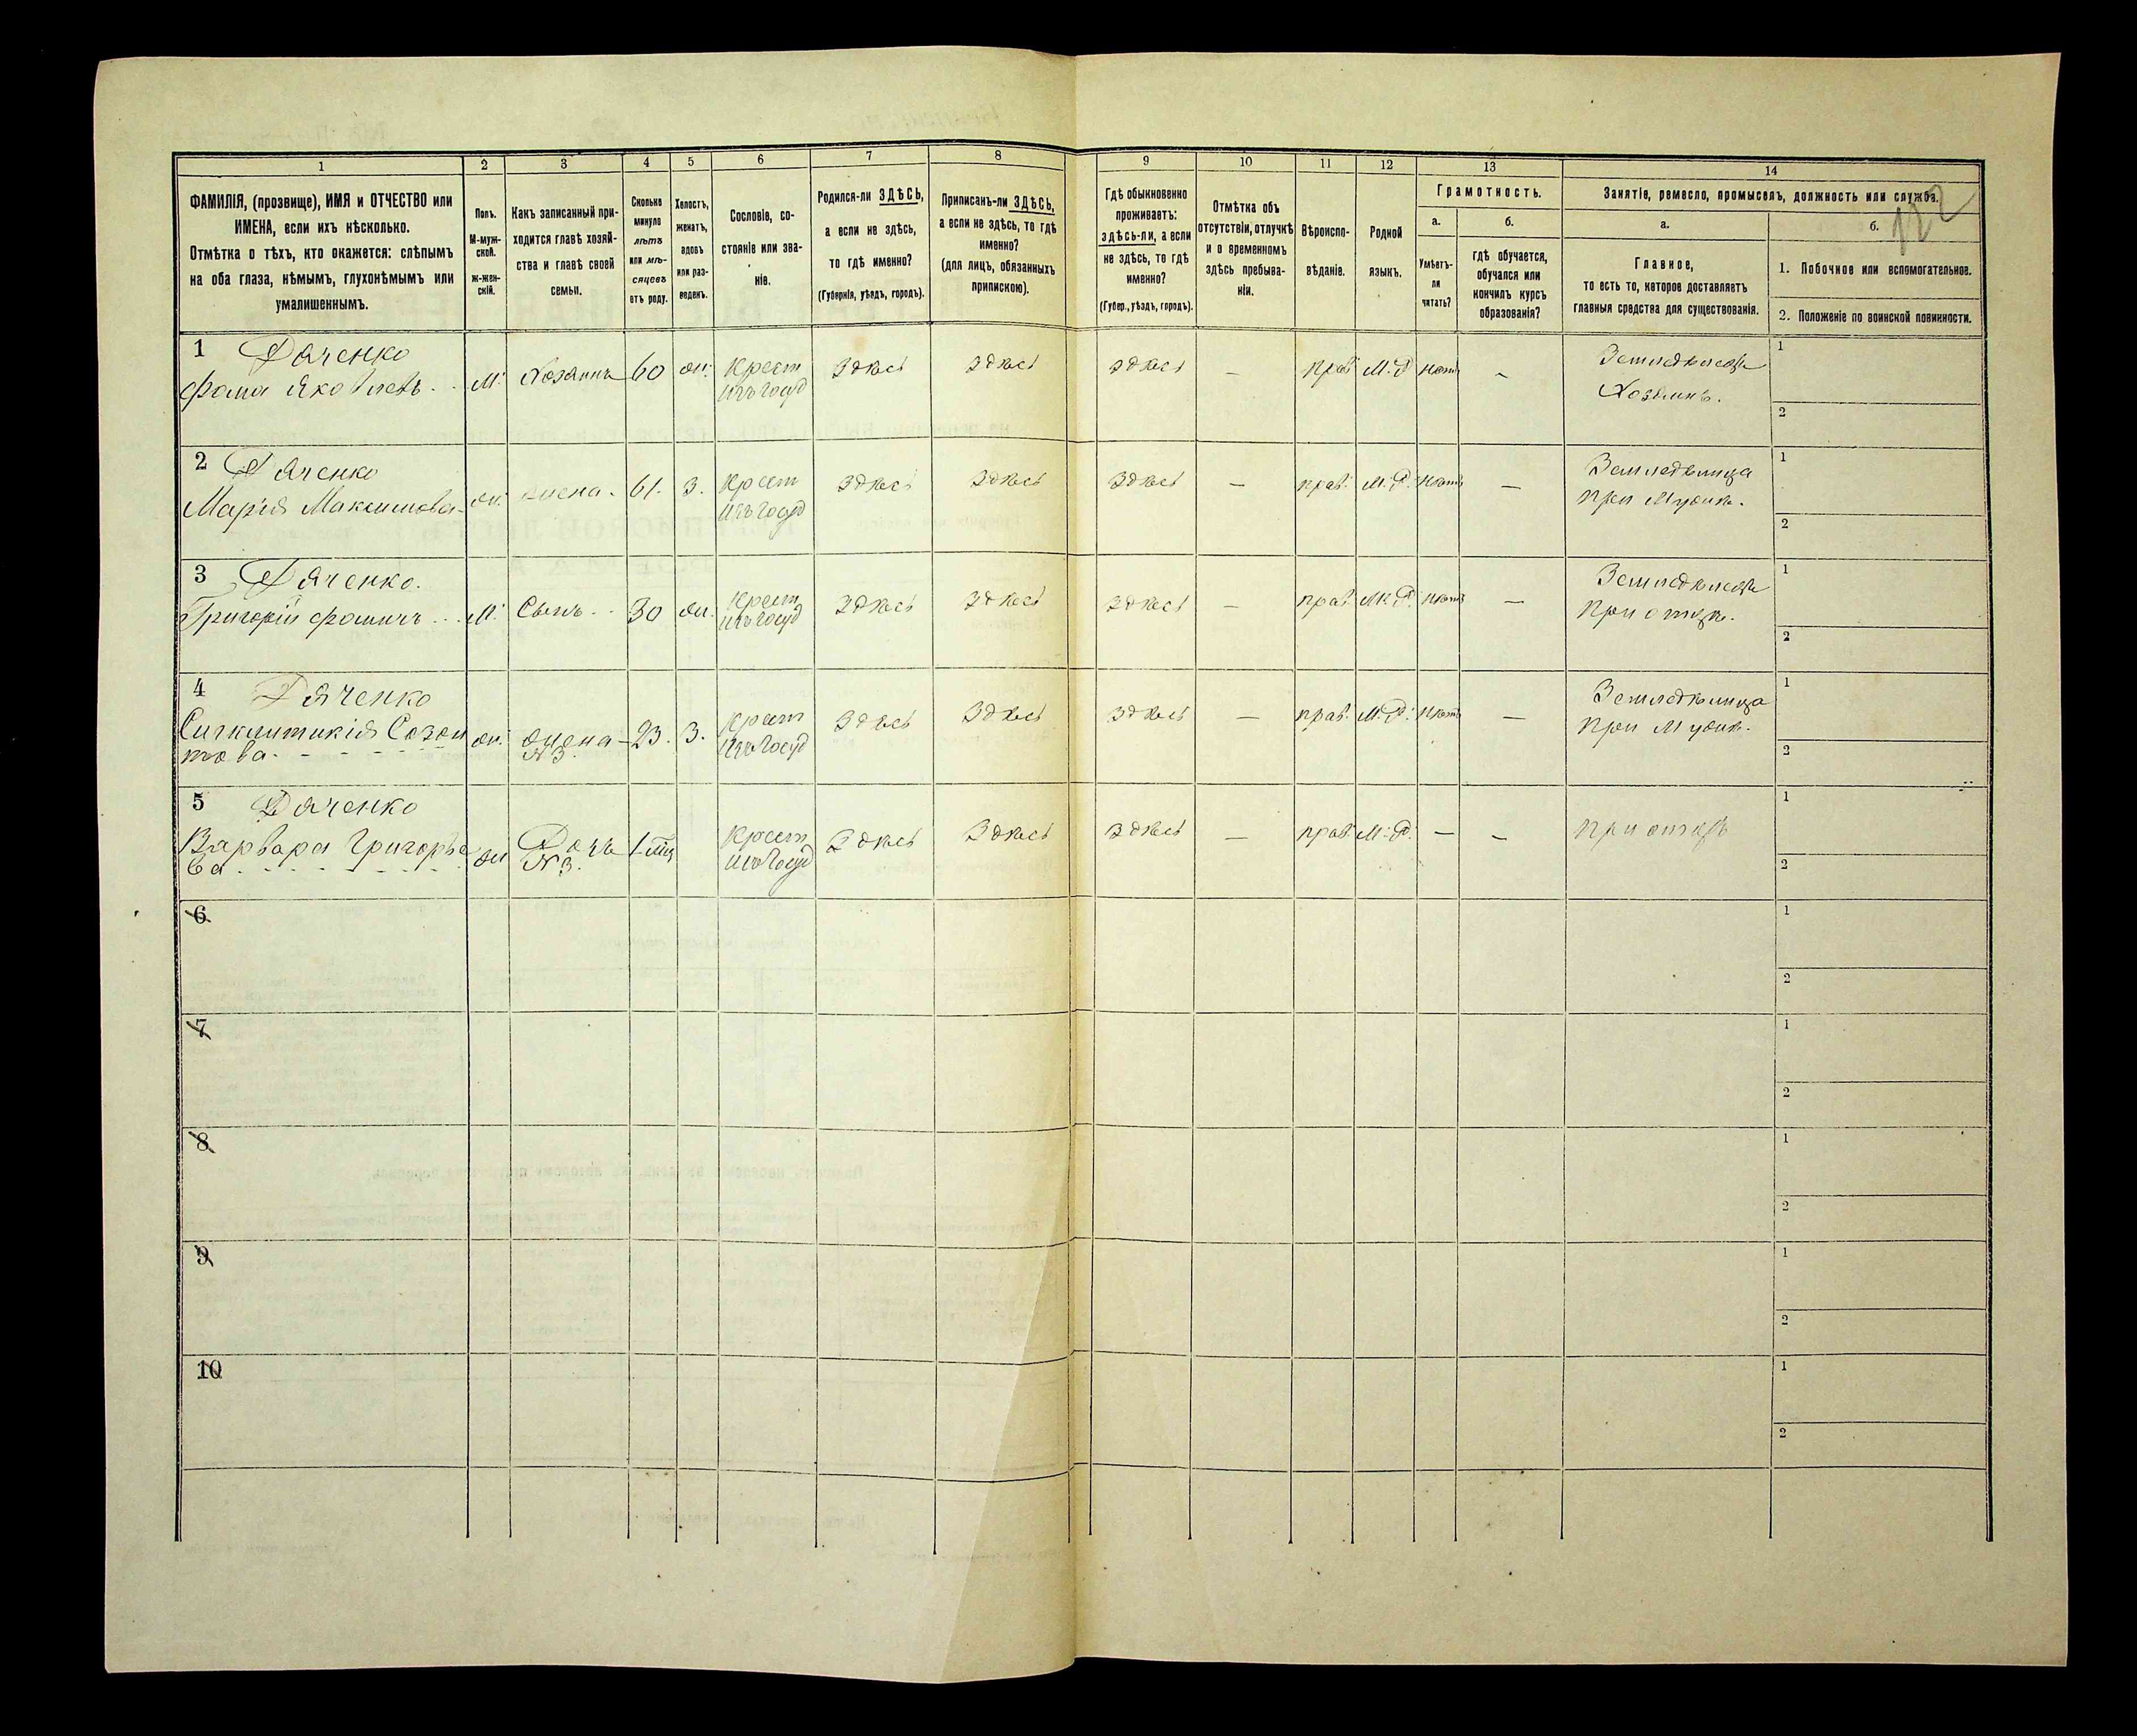 1 2 3 4 5 6 7 8 9 10 11 12 13 14
ФАМИЛІЯ, (прозвище), ИМЯ и ОТЧЕСТВО или
ИМЕНА, если ихъ нѣсколько.
Отмѣтка о тѣхъ, кто окажется: слѣпымъ
на оба глаза, нѣмымъ, глухонѣмымъ или
умалишеннымъ.
Полъ.
М-муж-
ской.
ж-жен-
скій.
Какъ записанный при-
ходится главѣ хозяй-
ства и главѣ своей
семьи.
Сколько
минуло
лѣтъ
или мѣ-
сяцевъ
отъ роду.
Холостъ,
женатъ,
вдовъ
или раз-
веденъ.
Сословіе, со-
стояніе или зва-
ніе.
Родился-ли ЗДѢСЬ,
а если не здѣсь,
то гдѣ именно?
(Губернія, уѣздъ, городъ).
Приписанъ-ли ЗДѢСЬ,
а если не здѣсь, то гдѣ
именно?
(для лицъ, обязанныхъ
припискою).
Гдѣ обыкновенно
проживаетъ:
здѣсь-ли, а если
не здѣсь, то гдѣ
именно?
(Губер., уѣздъ, городъ).
Отмѣтка объ
отсутствіи, отлучкѣ
и о временномъ
здѣсь пребыва-
ніи.
Вѣроиспо-
вѣданіе.
Родной
языкъ.
Грамотность.
а.
Умѣетъ-
ли
читать?
б.
гдѣ обучается,
обучался или
кончилъ курсъ
образованія?
Занятіе, ремесло, промыселъ, должность или служба.
122
а.
Главное,
то есть то, которое доставляетъ
главныя средства для существованія.
б.
1. Побочное или вспомогательное.
2. Положеніе по воинской повинности.
1 Дяченко
Фома Яковлевъ
м. Хозяинъ 60 ж. Крест изъ госуд Здѣсь Здѣсь Здѣсь — прав. М.Р. нѣтъ —
Земледѣлецъ
Хозяинъ.
1
2
2 Дяченко
Марія Максимова
ж. жена. 61. З. Крест изъ госуд Здѣсь Здѣсь Здѣсь — прав. М.Р. нѣтъ —
Земледѣлица
при мужѣ.
1
2
3 Дяченко.
Григорій Фомичъ
М. Сынъ 30 ж. Крест изъ госуд Здѣсь Здѣсь Здѣсь — прав. М.Р. нѣтъ —
Земледѣлецъ
при отцѣ.
1
2
4 Дяченко
Синклитикія Созон
това
ж. жена №3 23. З. Крест изъ госуд Здѣсь Здѣсь Здѣсь — прав. М.Р. нѣтъ —
Земледѣлица
при мужѣ.
1
2
5 Дяченко
Варвара Григорье
ва
ж Дочь №3. Крест изъ госуд Здѣсь Здѣсь Здѣсь — прав. М.Р. — —
при отцѣ
1
2
6
1
2
7
1
2
8
1
2
9
1
2
10
1
2